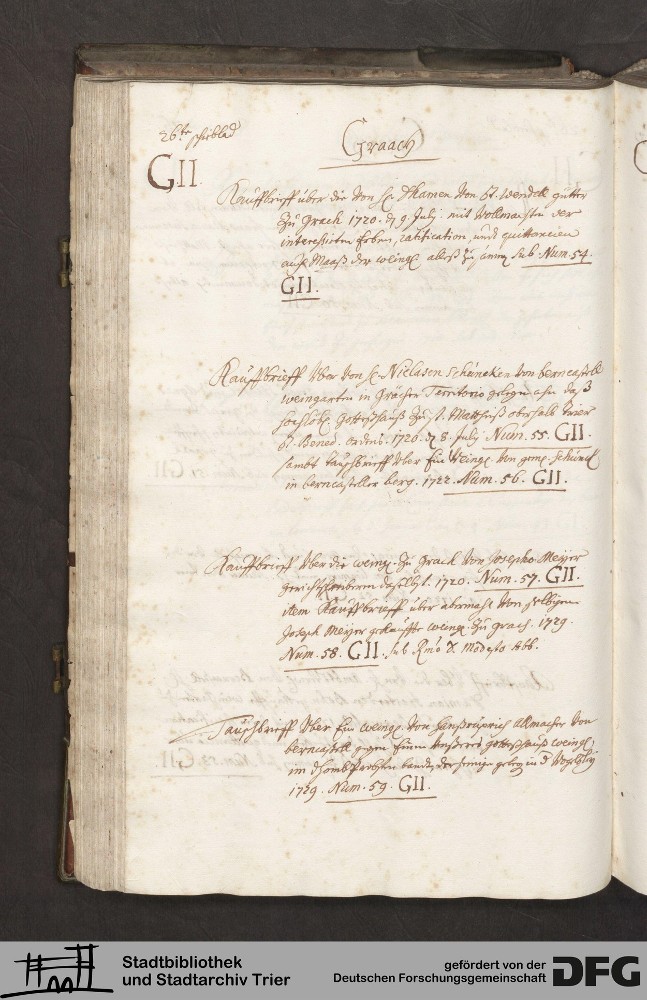 26te schieblad
Graach
GII.
Kauffbrieff über die von H. Dhamen von St. Wendell gütter
zu Grach 1720. d 9. Julij mit Vollmachten der
interessirten Erben, ratification, und quittereien
auch Maaß der weing. alleß zu sub Num. 54.
GII.
Kauffbrieff über von H. Niclasen Schüneken von berncastell
weingarten in Grächer Territorio gelegen ahn daß
hochlobl. Gottshauß zu St. Matheiß oberhalb Trier
St. Bened. ordens. 1720. d 8. Julij Num. 55. GII.
sambt tauschbrieff über Ein Weing. von gem. Schünck
in berncasteller berg. 1722. Num. 56. GII.
Kauffbrieff über die weing. zu Grach von Josepho Meyer
gerichtschreiberen daselbst. 1720. Num. 57. GII.
item Kauffbrieff über abermahl von selbigem
Joseph Meyer gekauffte weing. zu Grach. 1729.
Num. 58. GII. sub Rmo D. Modesto Abb.
Tauschbrieff über Ein weing. von von
berncastell gegen Einen Unsers gottshauß weing.
im gelegen in d
1729. Num. 59. GII.
Stadtbibliothek
und Stadtarchiv Trier
gefördert von der
Deutschen Forschungsgemeinschaft
DFG